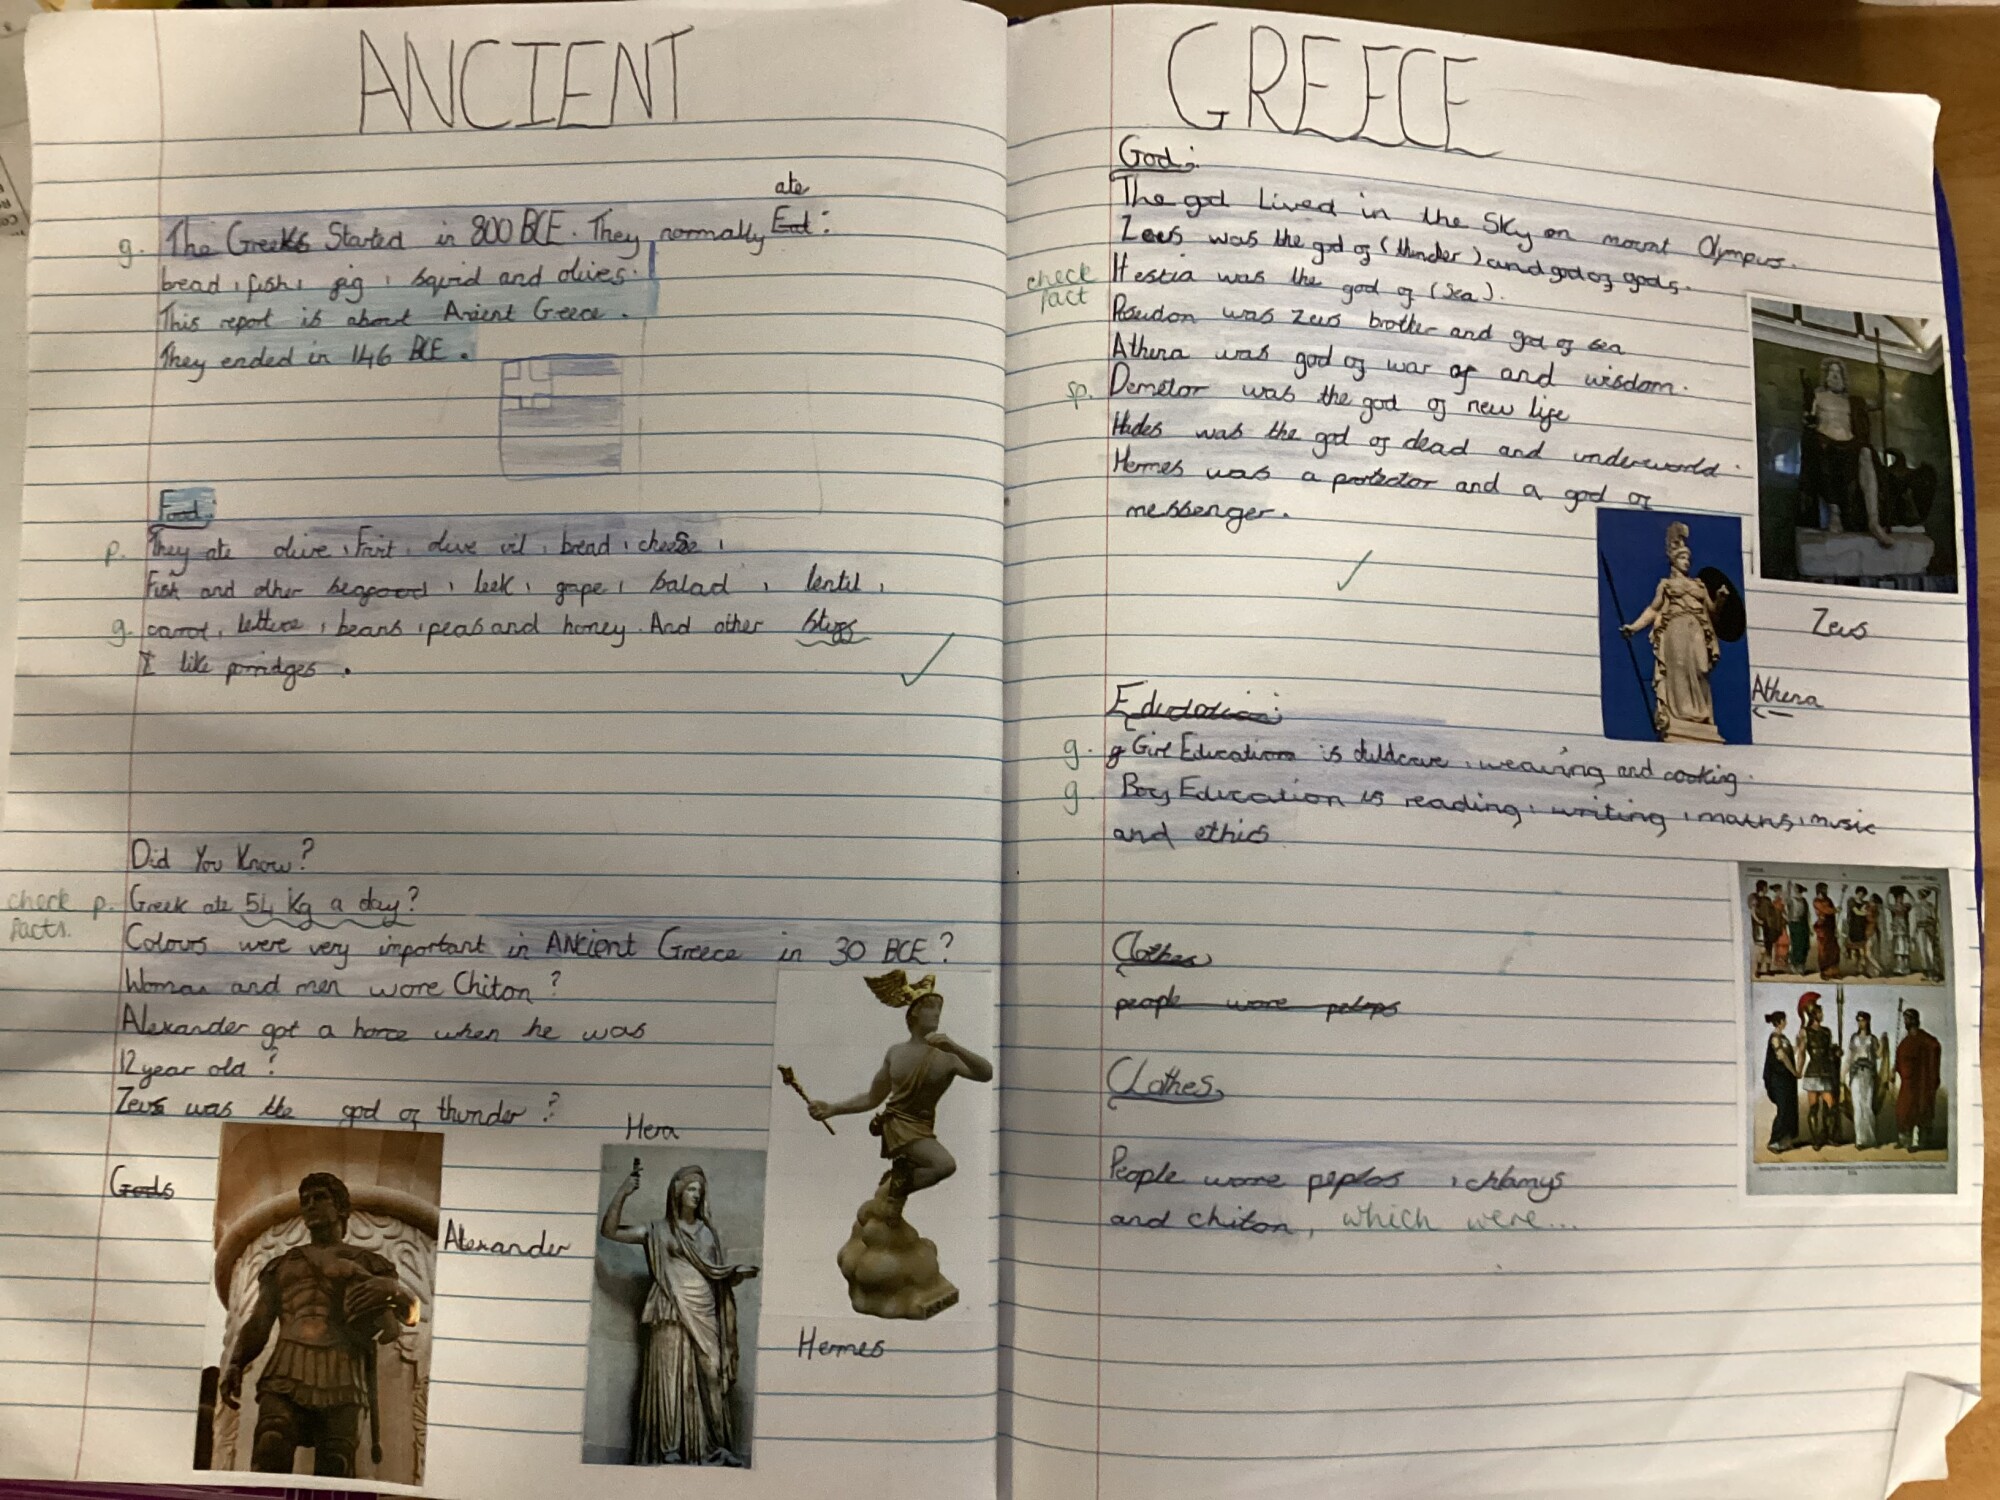 ANCIENT
ate
g. The Greeks Started in 800 BCE. They normally Eat :
bread, fish, fig, squid and olives.
This report is about Ancient Greece.
They ended in 146 BCE.
Food
p. They ate olive, Fruit, olive oil, bread, cheese,
Fish and other seafood, leek, grape, salad, lentil,
g. carrot, lettuce, beans, peas and honey. And other
I like porridges.
Did You Know?
check facts. p. Greek ate 54 kg a day?
Colours were very important in Ancient Greece in 30 BCE?
Woman and men wore Chiton?
Alexander got a horce when he was
12 year old?
Zeus was the god of thunder?
Gods
Alexander
Hera
Hermes
GREECE
God:
The god Lived in the Sky on mount Olympus.
Zeus was the god of (thunder) and god of gods.
check fact Hestia was the god of (sea).
was zeus brother and god of sea
Athena was god of war of and wisdom.
sp. Demetor was the god of new life
Hades was the god of dead and underworld.
Hermes was a protector and a god of
messenger.
Zeus
Athena
Education:
g. g Girl Education is , weaving and cooking.
g. Boy Education is reading, writing, maths, music
and ethics
Clothes
people wore
Clothes
People wore peplos, chlamys
and chiton, which were...